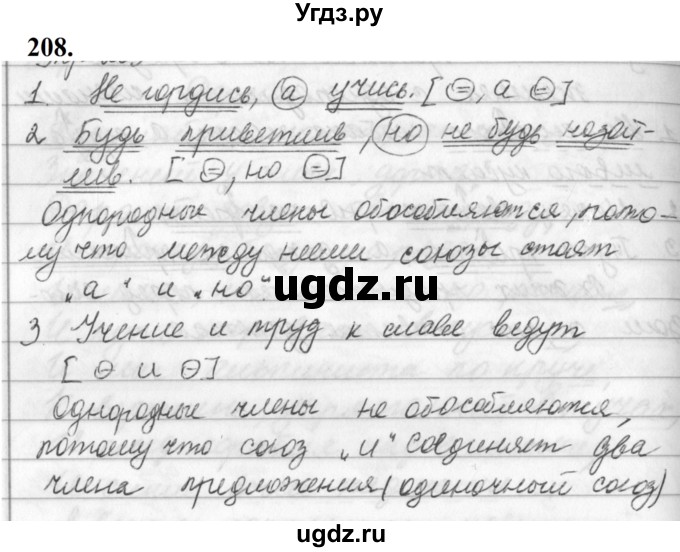 Угдз.ру
208.
1. Не гордись, а учись. [⊖, а ⊖]
2 Будь приветлив, но не будь назой-
лив. [⊖, но ⊖]
Однородные члены обособляются, пото-
му что между ними союзы стоят
„а“ и „но“
ugdz.ru
3 Учение и труд к славе ведут
[⊖ и ⊖]
Однородные члены не обособляются,
потому что союз „и“ соединяет два
члена предложения (одиночный союз)
ugdz.ru